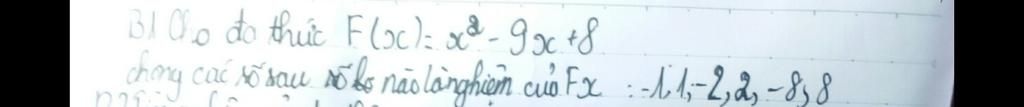 B1 Cho đa thức F(x) = x² - 9x + 8
chong các số sau số nào là nghiệm của Fx : -1, 1, -2, 2, -8, 8